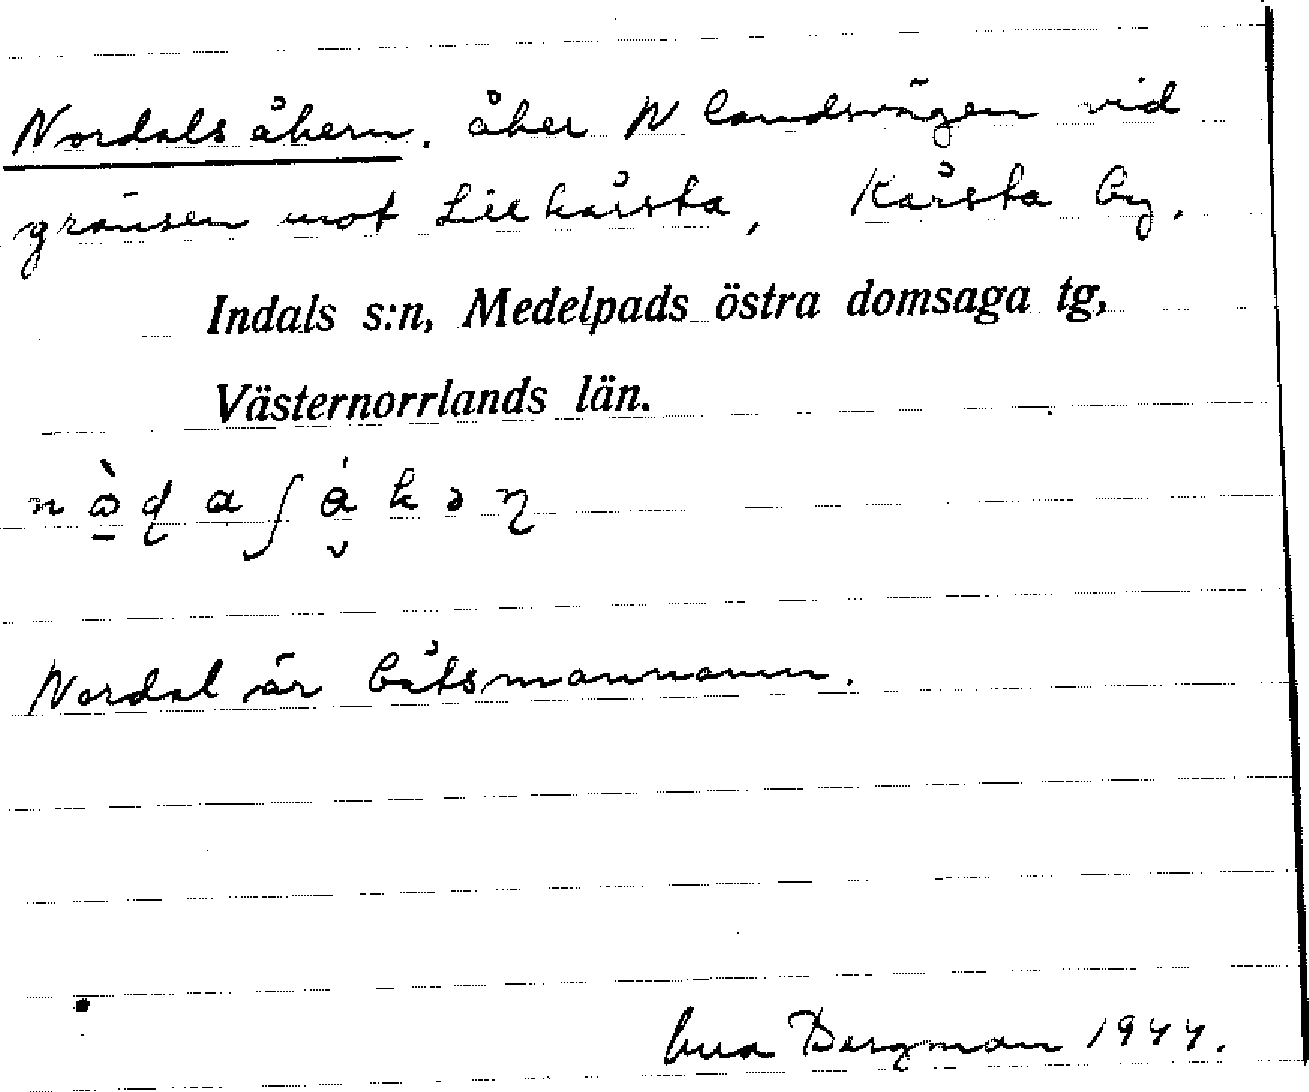 Nordalsåkern. åker N landsvägen vid
gränsen mot Lillkårsta, Kårsta by.
Indals s:n, Medelpads östra domsaga tg,
Västernorrlands län.
Nordal är båtsmannanamn.
Bergman 1944.